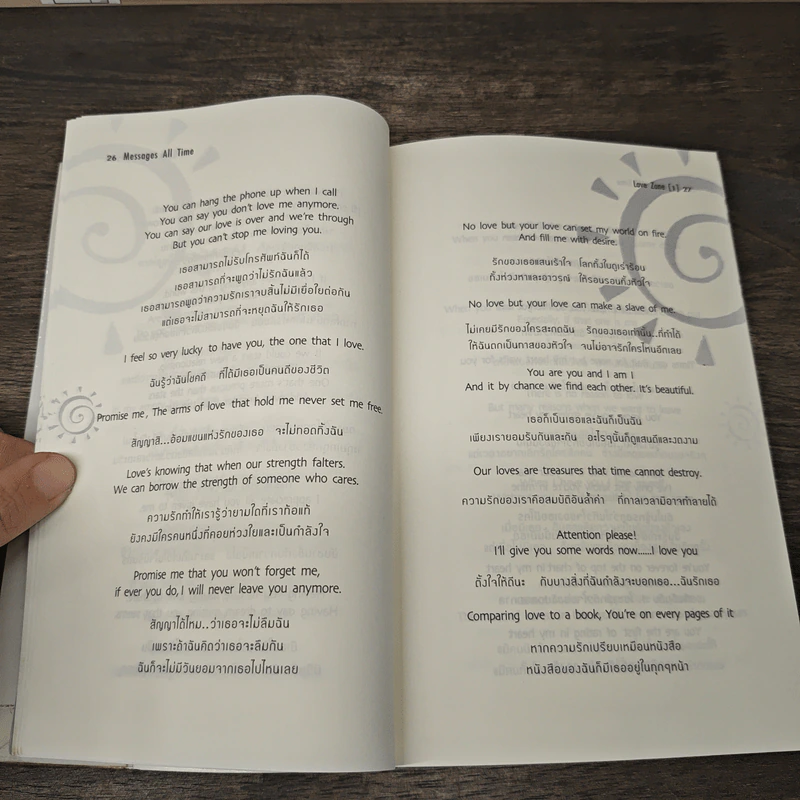 26 Messages All Time
You can hang the phone up when I call
You can say you don't love me anymore.
You can say our love is over and we're through
But you can't stop me loving you.
เธอสามารถไม่รับโทรศัพท์ฉันก็ได้
เธอสามารถที่จะพูดว่าไม่รักฉันแล้ว
เธอสามารถพูดว่าความรักเราจบสิ้นไม่มีเยื่อใยต่อกัน
แต่เธอจะไม่สามารถที่จะหยุดฉันให้รักเธอ
I feel so very lucky to have you, the one that I love.
ฉันรู้ว่าฉันโชคดี ที่ได้มีเธอเป็นคนดีของชีวิต
Promise me, The arms of love that hold me never set me free.
สัญญาสิ...อ้อมแขนแห่งรักของเธอ จะไม่ทอดทิ้งฉัน
Love's knowing that when our strength falters.
We can borrow the strength of someone who cares.
ความรักทำให้เรารู้ว่ายามใดที่เราท้อแท้
ยังคงมีใครคนหนึ่งที่คอยห่วงใยและเป็นกำลังใจ
Promise me that you won't forget me,
if ever you do, I will never leave you anymore.
สัญญาได้ไหม..ว่าเธอจะไม่ลืมฉัน
เพราะถ้าฉันคิดว่าเธอจะลืมกัน
ฉันก็จะไม่มีวันยอมจากเธอไปไหนเลย
Love Zone [3] 27
No love but your love can set my world on fire.
And fill me with desire.
รักของเธอแสนเร้าใจ โลกทั้งใบดูเร่าร้อน
ทั้งห่วงหาและอาวรณ์ ให้รอนรอนทั้งหัวใจ
No love but your love can make a slave of me.
ไม่เคยมีรักของใครสะกดฉัน รักของเธอเท่านั้น...ที่ทำได้
ให้ฉันตกเป็นทาสของหัวใจ จนไม่อาจรักใครไหนอีกเลย
You are you and I am I
And it by chance we find each other. It's beautiful.
เธอก็เป็นเธอและฉันก็เป็นฉัน
เพียงเรายอมรับกันและกัน อะไรๆนั้นก็ดูแสนดีและงดงาม
Our loves are treasures that time cannot destroy.
ความรักของเราคือสมบัติอันล้ำค่า ที่กาลเวลามิอาจทำลายได้
Attention please!
I'll give you some words now......I love you
ตั้งใจให้ดีนะ กับบางสิ่งที่ฉันกำลังจะบอกเธอ...ฉันรักเธอ
Comparing love to a book, You're on every pages of it
หากความรักเปรียบเหมือนหนังสือ
หนังสือของฉันก็มีเธออยู่ในทุกๆหน้า